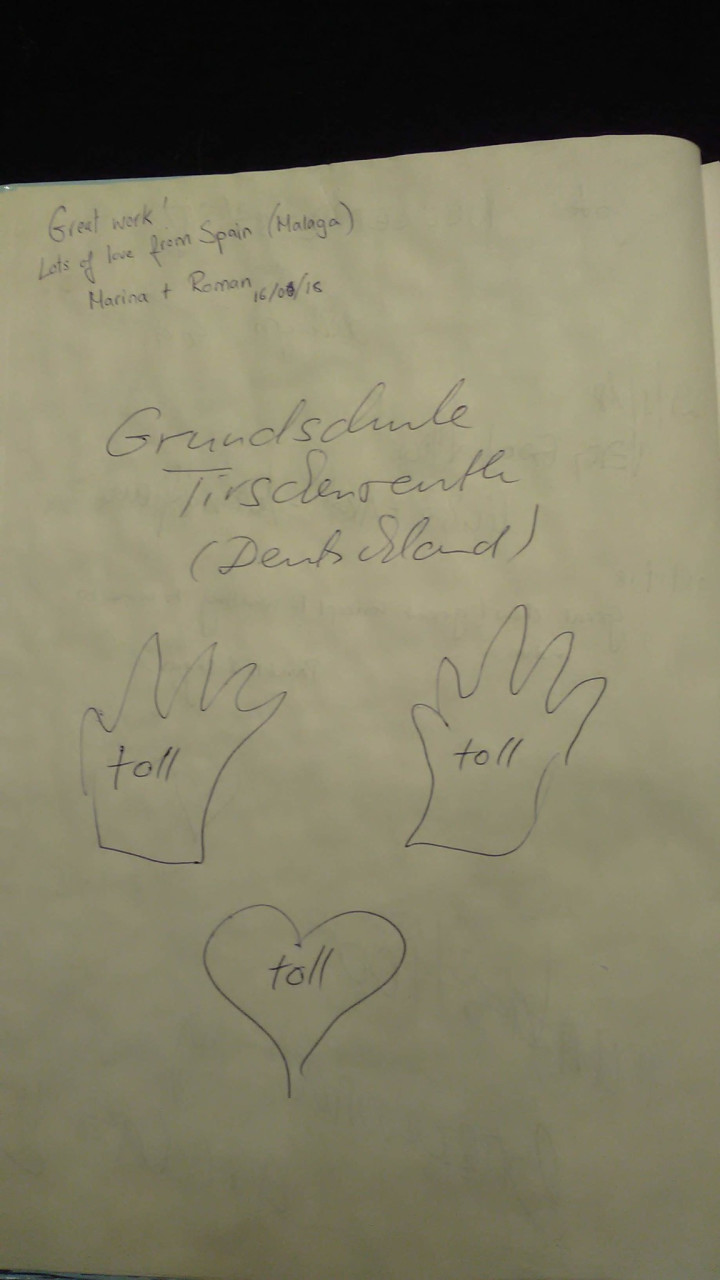 Great work!
Lots of love from Spain (Malaga)
Marina + Roman 16/08/18
Grundschule
Tirschenreuth
(Deutschland)
toll
toll
toll